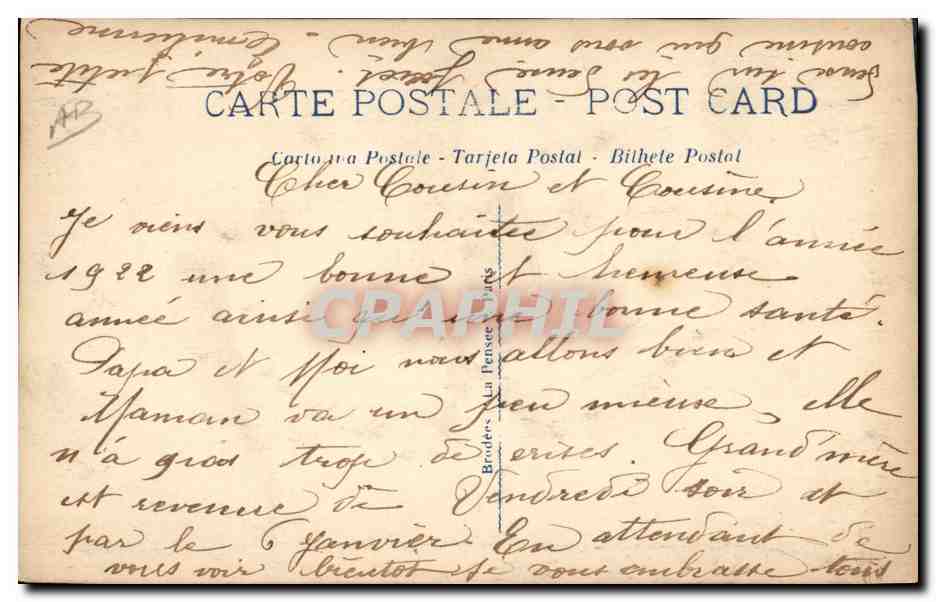 CARTE POSTALE - POST CARD
Cartolina Postale - Tarjeta Postal - Bilhete Postal
AB
Cher Cousin et Cousine,
Je viens vous souhaitée pour l'année
1922 une bonne et heureuse
année ainsi qu'une bonne santé.
Papa et Moi nous allons bien et
Maman va un peu mieuse, elle
n'a pas trop de crises. Grand'mère
est revenue de Vendredi soir et
par le 6 Janvier. En attendant de
vous voir bientot je vous embrasse tous
sur les deux joues. Votre petite
cousine qui vous aime bien - Emilienne
Brodées "La Pensee" Paris
CPAPHIL